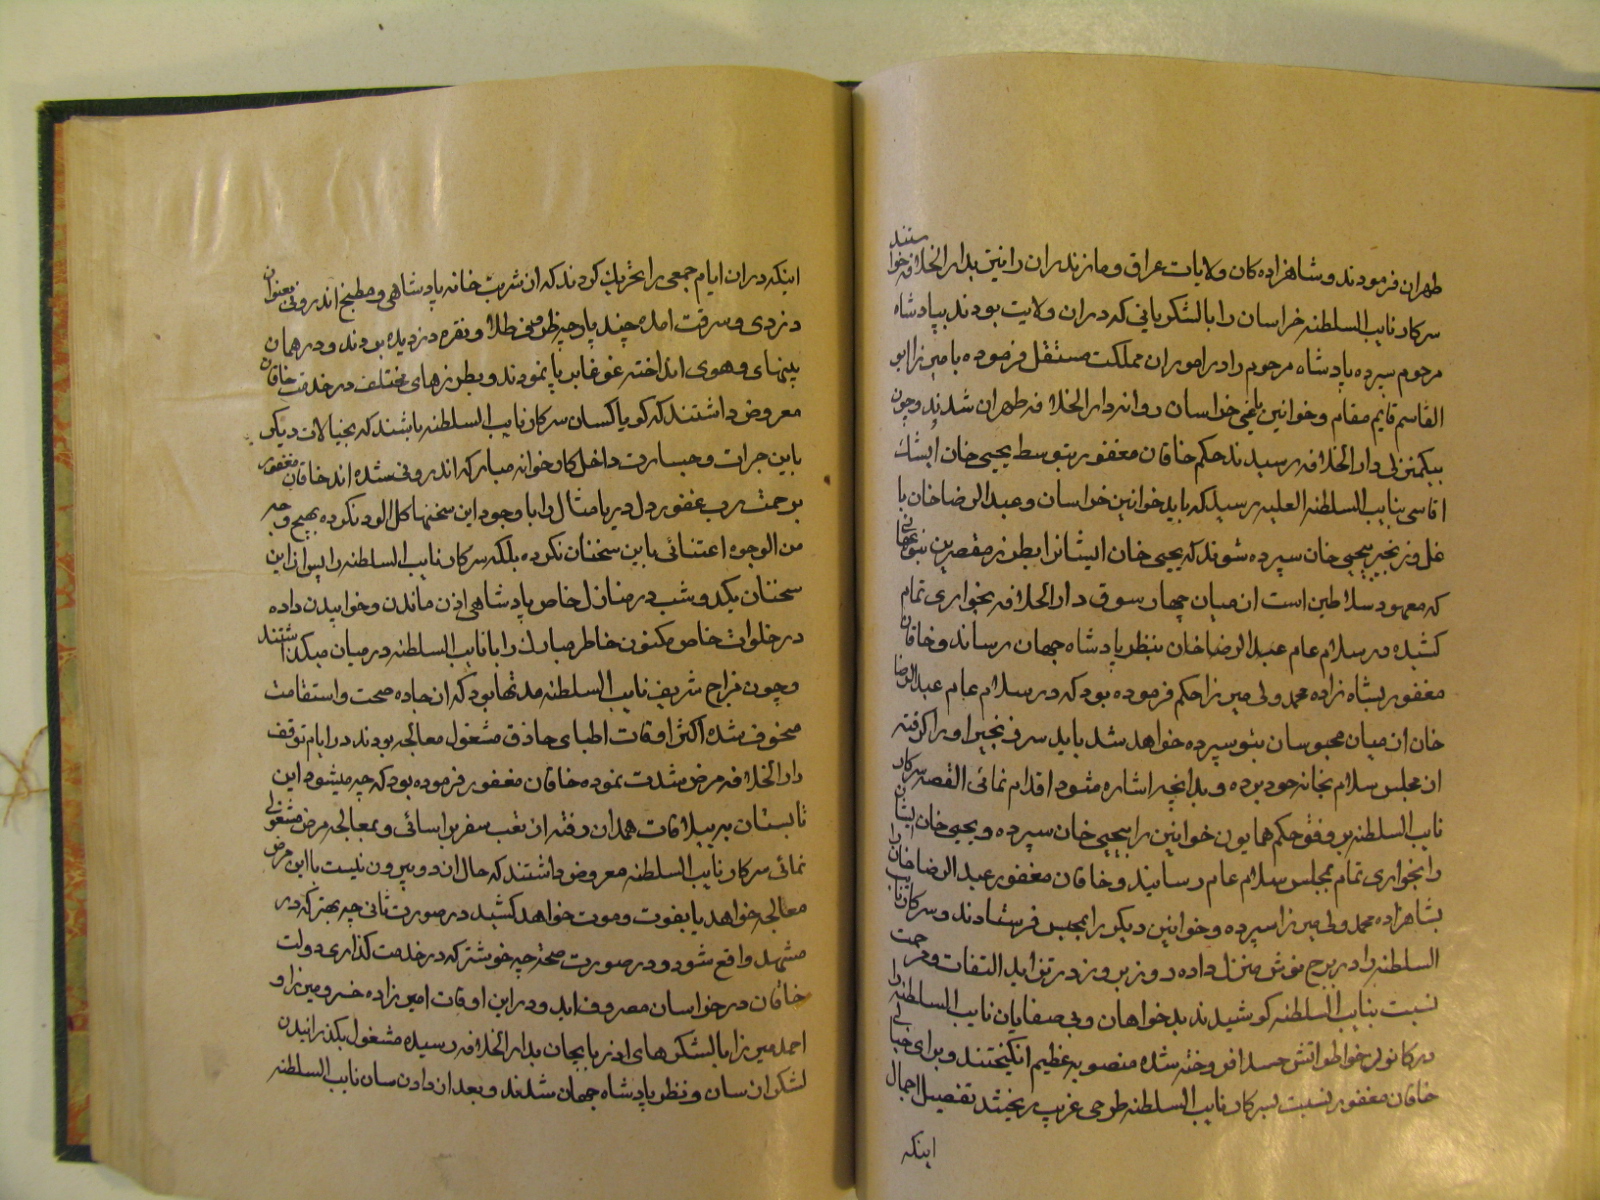 طهران فرمودند و شاهزاده کان ولایات عراق و مازندران را نیز بدار الخلافه خواستند
سرکار نایب السلطنه خراسان را با لشکریانی که در ان ولایت بودند بپادشاه
مرحوم سپرده پادشاه مرحوم را در امور ان مملکت مستقل فرموده با میرزا ابو
القاسم قایم مقام و خوانین یاغی خراسان روانه دار الخلافه طهران شدند و چون
بیکمنزلی دار الخلافه رسیدند حکم خاقان مغفور بتوسط یحیی خان ایشک
اقاسی بنایب السلطنه العلیه رسید که باید خوانین خراسان و عبد الرضا خان با
غل و زنجیر بیحیی خان سپرده شوند که یحیی خان ایشانرا بطرز مقصرین بنوعی
که معهود سلاطین است از میان چهار سوق دار الخلافه بخواری تمام
کشیده در سلام عام عبد الرضا خان بنظر پادشاه جهان رساند و خاقان
مغفور بشاه زاده محمد ولی میرزا حکم فرموده بود که در سلام عام عبد الرضا
خان از میان محبوسان بتو سپرده خواهد شد باید سر زنجیر او را کرفته
از مجلس سلام بخانه خود برده و بدانچه اشاره مشود اقدام نمائی القصه سرکار
نایب السلطنه بر وفق حکم همایون خوانین را بیحیی خان سپرده و یحیی خان ایشان
را بخواری تمام بمجلس سلام عام رسانید و خاقان مغفور عبد الرضا خان را
بشاهزاده محمد ولی میرزا سپرده و خوانین دیکر را بمحبس فرستادند و سرکار نایب
السلطنه را در برج نوش منزل داده روز بروز در تزاید التفات و مرحمت
نسبت بنایب السلطنه کوشیدند بدخواهان و بی صفایان نایب السلطنه را
در کانون خواطر اتش حسد افروخته شده منصوبه عظیم انکیختند و برای خیالی
خاقان مغفور نسبت بسرکار نایب السلطنه طرحی غریب ریختند تفصیل اجمال
اینکه
اینکه در ان ایام جمعی را تحریک کودند که از شربت خانه پادشاهی و مطبخ اندرونی بعنوان
دزدی و سرقت امده چند پارچه ظروف طلا و نقره دزدیده بودند و در همان
های و هوی انداخته غوغا بر پا نمودند و بطرزهای مختلف در خدمت خاقان
معروض داشتند که کویا کسان سرکار نایب السلطنه باشند که بخیالات دیکر
باین جرات و جسارت داخل کارخوانه مبارکه اندرونی شده اند خاقان مغفور
برحمت رب غفور دل دریا مثال را با وجود این سخنها کل الود نکرده بهیچ وجه
من الوجوه اعتنائی باین سخنان نکرده بلکه سرکار نایب السلطنه را پس از این
سخنان یکدو شب در منازل خاص پادشاهی اذن ماندن و خوابیدن داده
در خلوات خاص مکنون خاطر مبارک را با نایب السلطنه در میان میکذاشتند
و چون مزاج شریف نایب السلطنه مدتها بود که از جاده صحت و استقامت
منحرف شده اکثر اوقات اطبای حاذق مشغول معالجه بودند در ایام توقف
دار الخلافه مرض شدت نموده خاقان مغفور فرموده بود که چه میشود این
تابستان به ییلاقات همدان رفته از تعب سفر بر اسائی و بمعالجه مرض مشغولی
نمائی سرکار نایب السلطنه معروض داشتند که حال از دو بیرون نیست با این مرض
معالجه خواهد یا بفوت و موت خواهد کشید در صورت ثانی چه بهتر که در
مشهد واقع شود و در صورت صحة چه خوشتر که در خدمت کذاری دولت
خاقان در خراسان مصروف اید و در این اوقات امیر زاده خسرو میرزا و
احمد میرزا با لشکرهای اذربایجان بدار الخلافه رسیده مشغول بکذرانیدن
لشکر از سان و نظر پادشاه جهان شدند و بعد از دادن سان نایب السلطنه